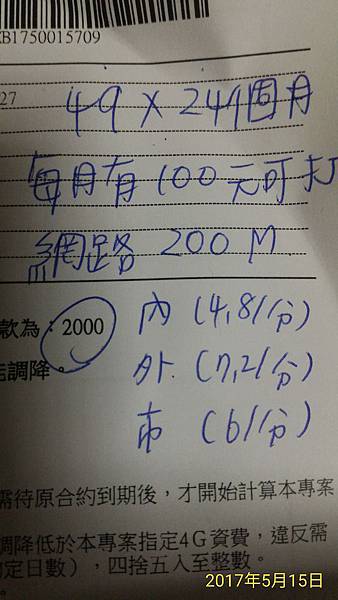 KB1750015709
27
49 × 24個月
每月有 100 元可打
網路 200 M
款為：2000
內 (4.8/分)
能調降。
外 (7.2/分)
市 (6/分)
需待原合約到期後，才開始計算本專案
調降低於本專案指定4G資費，違反需
約定日數），四捨五入至整數。
2017年5月15日